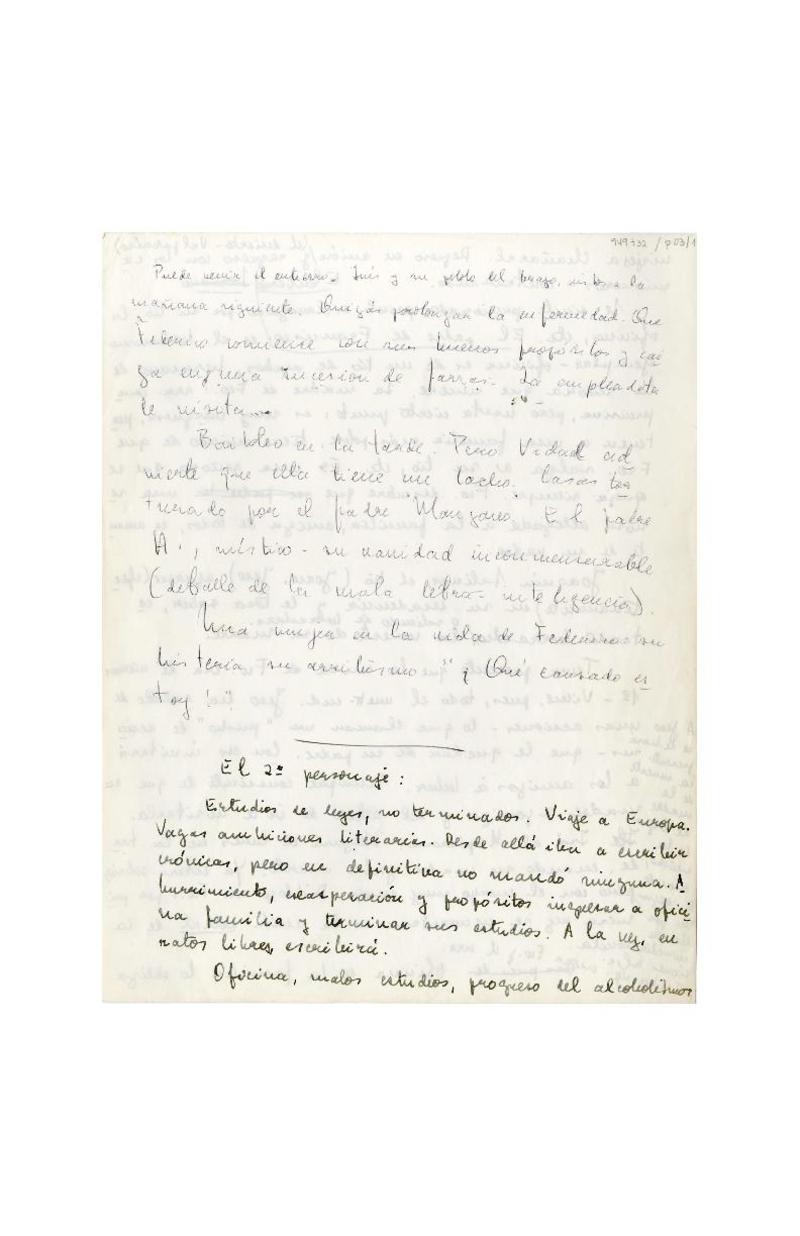 949732 / p03/1
Puede venir el entierro. Inés y su pololo del , visitan la
mañana siguiente. Quizás prolongar la enfermedad. Que
Federico comience con sus buenos propósitos y cai
ga en una sucesión de farras. La empleadita
le visita...
Baibleo en la tarde. Pero Vidal ad
vierte que ella tiene un lacho. Casas tor
turado por el padre Manzano. El padre
A., místico - su vanidad inconmensurable
(detalle de la mala letra = inteligencia).
Una mujer en la vida de Federico su
histeria su arribismo "¡Qué cansado es
toy!"
El 2º personaje:
Estudios de leyes, no terminados. Viaje a Europa.
Vagas ambiciones literarias. Desde allá iba a escribir
crónicas, pero en definitiva no mandó ninguna. A
burrimiento, exasperación y propósitos ingresar a ofici
na familia y terminar sus estudios. A la vez, en
ratos libres, escribirá.
Oficina, malos estudios, progreso del alcoholismo